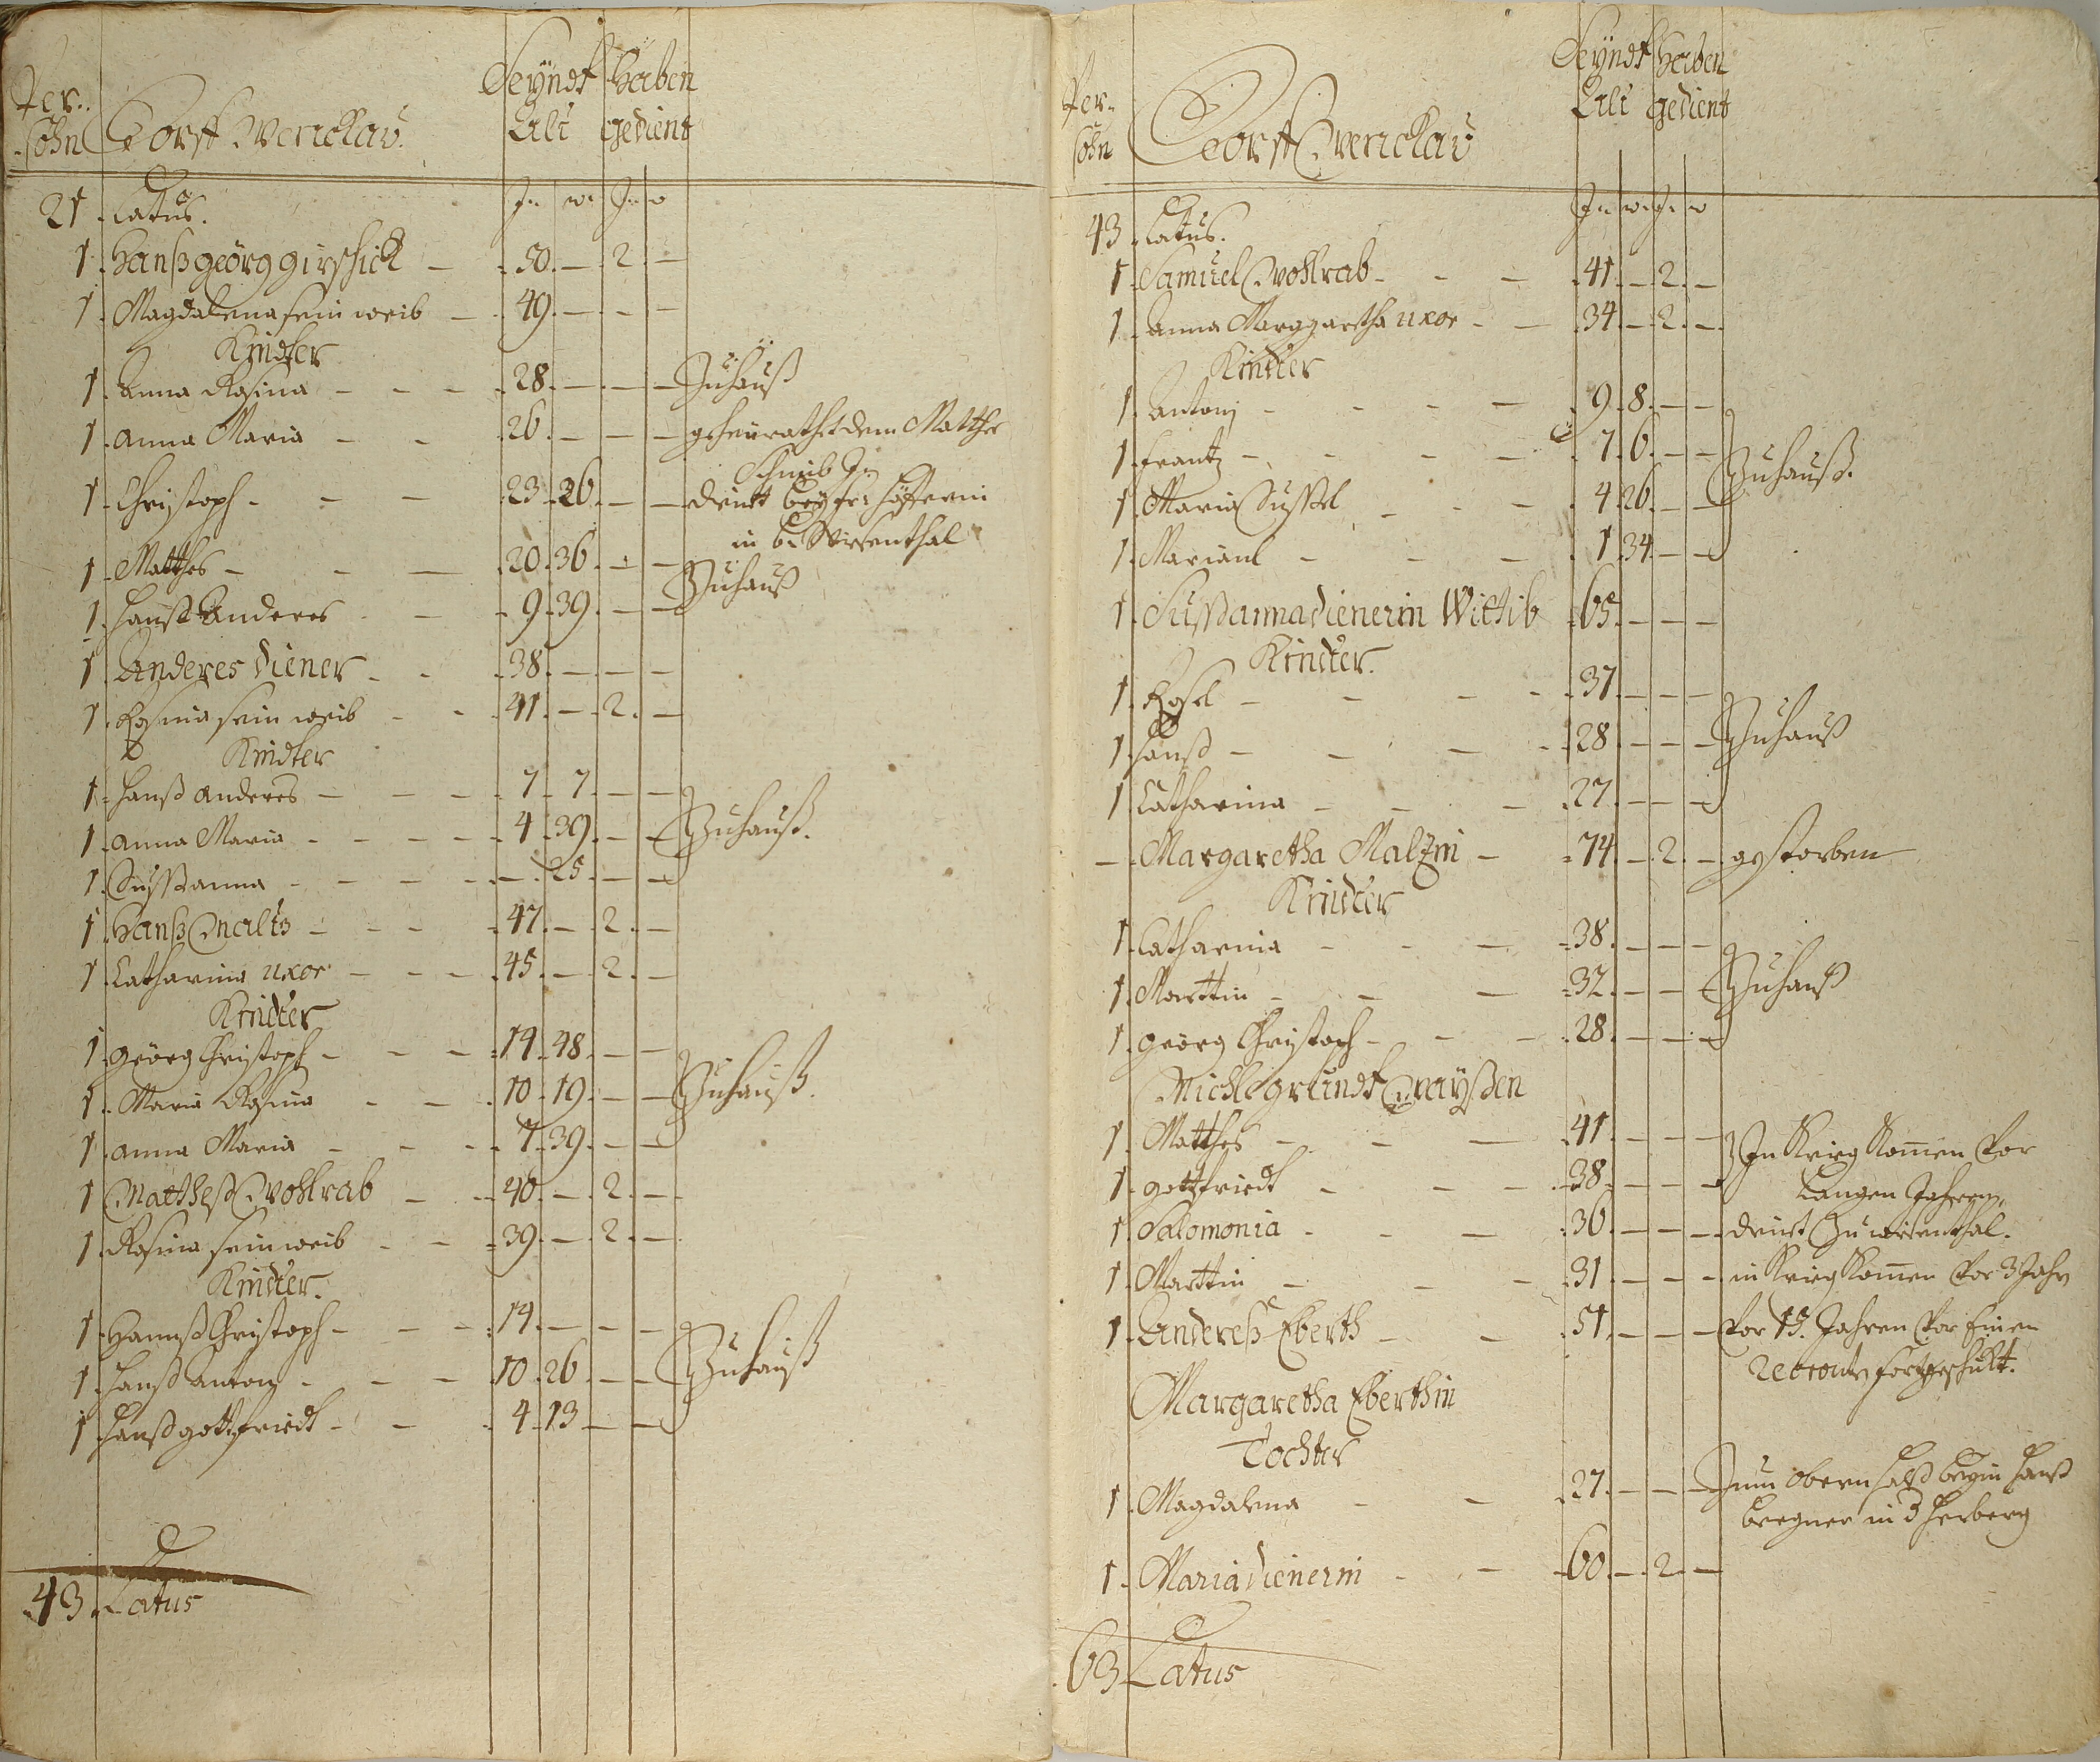 Per-
sohn Dorff Werickau Seyndt Alt Haben gedient
Jr. w. Jr. w
21 Latus.
1 Hanß Georg Girschick — 50. — 2. —
1 Magdalena sein weib — 49. — — —
Kindter
1 Anna Rosina — 28. — — — Zuhauß
1 Anna Maria — 26. — — — geheurathet dem Matthes
1 Christoph — 23. 26. — — dient bey
in Wiesenthal
1 Matthes — 20. 36. — — Zuhauß
1 Hanß Anderes — 9. 39. — —
1 Anderes Diener — 38. — — —
1 Rosina sein weib — 41. — 2. —
Kindter
1 Hanß Anderes — 7. 7. — —
1 Anna Maria — 4. 39. — — Zuhauß.
1 Sußanna — — 25. — —
1 Hanß Maltz — 47. — 2. —
1 Catharina uxor — 45. — 2. —
Kindter
1 Georg Christoph — 14. 48. — —
1 Maria Rosina — 10. 19. — — Zuhauß.
1 Anna Maria — 7. 39. — —
1 Mattheß Vohlrab — 40. — 2. —
1 Rosina sein weib — 39. — 2. —
Kindter.
1 Hannß Christoph — 14. — — —
1 Hanß Antonj — 10. 26. — — Zuhauß
1 Hanß Gottfriedt — 4. 13. — —
43. Latus
Per-
sohn Dorff Werickau Seyndt Alt Haben gedient
Jr. w. Jr. w
43 Latus.
1 Samuel Vohlrab — 41. — 2. —
1 Anna Marggaretha uxor — 34. — 2. —
Kindter
1 Antonj — 9. 8. — —
1 Frantz — 7. 6. — — Zuhauß.
1 Maria Sussel — 4. 26. — —
1 Marianl — 1. 34. — —
1 Sußanna Dienerin Wittib 65. — — —
Kindter.
1 Rosel — 37. — — —
1 Hanß — 28. — — — Zuhauß
1 Catharina — 27. — — —
— Margaretha Maltzin — 74. — 2. — gestorben
Kindter
1 Catharina — 38. — — —
1 Marttin — 32. — — — Zuhauß
1 Georg Christoph — 28. — — —
Michl Grundt Wayßen
1 Matthes — 41. — — — In Krieg Komen vor
1 Gottfriedt — 38. — — — Langen Jahren,
1 Salomonia — 36. — — — dient Zu wiesenthal.
1 Marttin — 31. — — — in Krieg Komen vor 3 Jahr
1 Andereß Eberth — 51. — — — vor 13. Jahren vor Einen
Margaretha Eberthin
Tochter
1 Magdalena — 27. — — — Zum obern
1 Maria Dienerin — 60. — 2. —
63 Latus